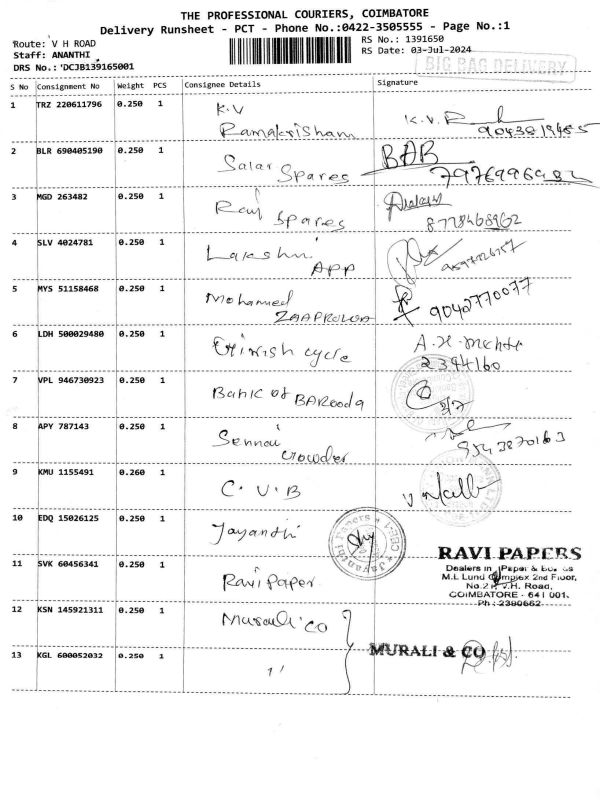 THE PROFESSIONAL COURIERS, COIMBATORE
Delivery Runsheet - PCT - Phone No.:0422-3505555 - Page No.:1
Route: V H ROAD
RS No.: 1391650
Staff: ANANTHI
RS Date: 03-Jul-2024
DRS No.: DCJB139165001
BIG BAG DELIVERY
S No Consignment No Weight PCS Consignee Details Signature
1 TRZ 220611796 0.250 1 K.V
Ramakrisham
2 BLR 690405190 0.250 1 Salar BAB
Spares 7976996982
3 MGD 263482 0.250 1 Ravi
Spares 8778468962
4 SLV 4024781 0.250 1 Lakshmi
APP
5 MYS 51158468 0.250 1 Mohamed 9042770077
6 LDH 500029480 0.250 1 cycle
2394160
7 VPL 946730923 0.250 1 Bank of BARooda
8 APY 787143 0.250 1 Sennai
9543870163
9 KMU 1155491 0.260 1 C.V.B
10 EDQ 15026125 0.250 1 Jayanthi
Jayanthi Papers CBE-1
11 SVK 60456341 0.250 1 Ravi Paper
RAVI PAPERS
Dealers in Paper &
M.L Lund Complex 2nd Floor,
V.H. Road,
COIMBATORE - 641 001.
Ph : 2390662
12 KSN 145921311 0.250 1 Murali co
13 KGL 600052032 0.250 1 "
MURALI & CO